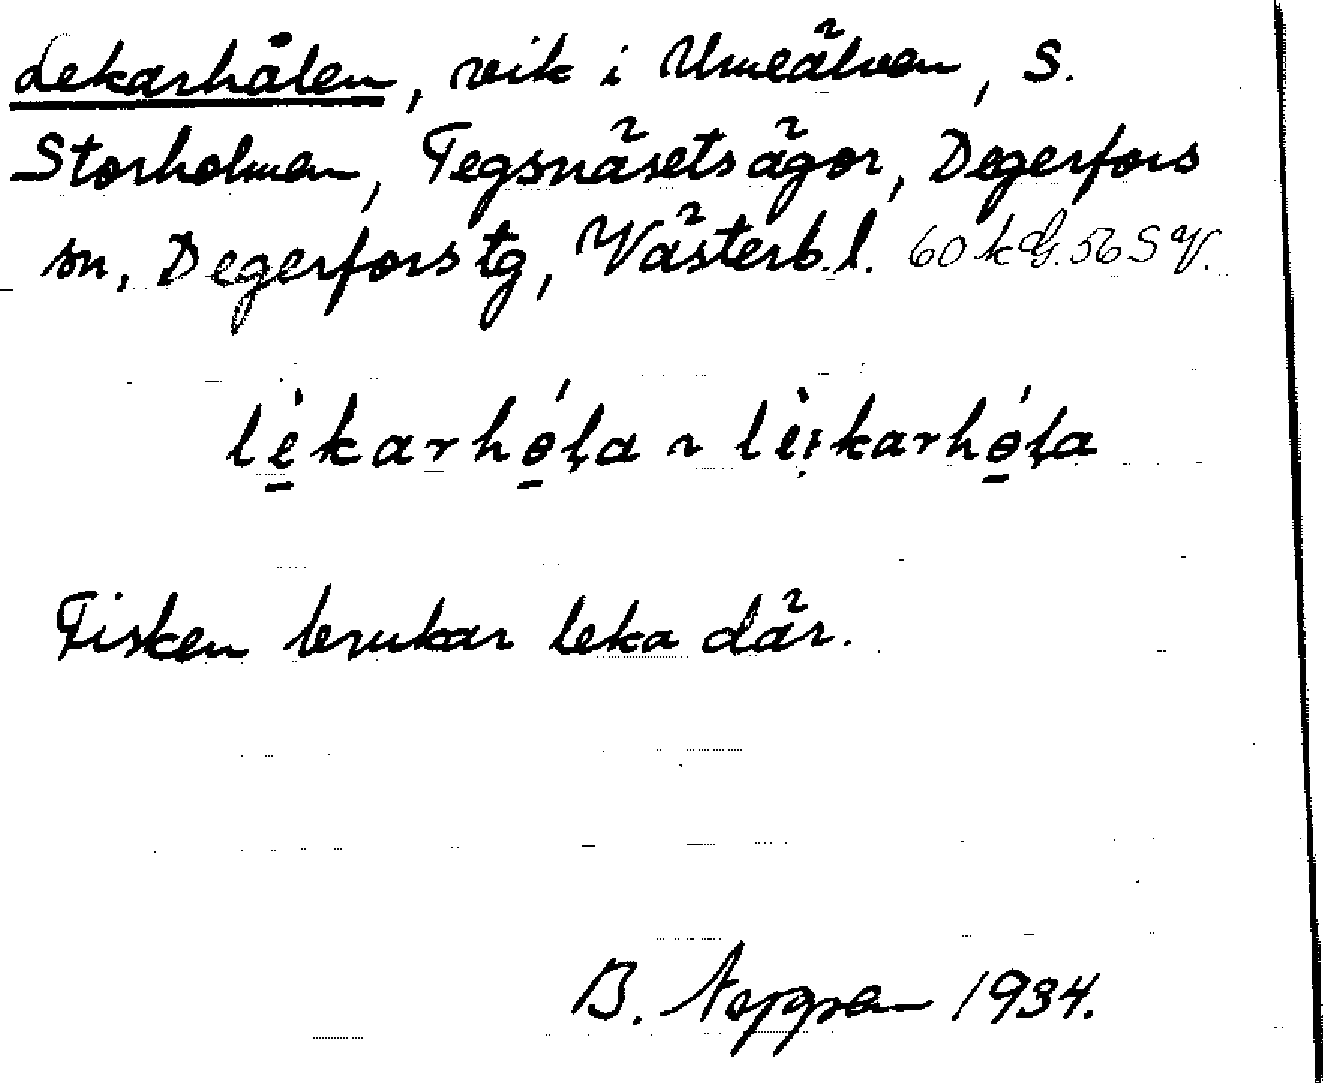 Lekarhålen, vik i Umeälven, S.
Storholmen, Tegsnäsets ägor, Degerfors
sn, Degerfors tg, Västerb.l. 60 k G. 56 S V.
lèkarhǿla ~ lèi̯karhǿla
Fisken brukar leka där.
B. 1934.